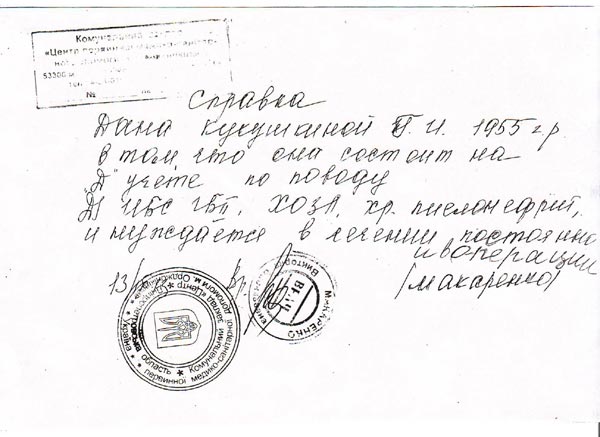 Комунальний заклад
«Центр первинної медико-санітар-
ної допомоги
53300 м
№
Справка
Дана Кукушкиной П. И. 1955 г.р.
в том что она состоит на
"Д" учёте по поводу
Дз ИБС ГБII, ХОЗЛ, хр. пиелонефрит,
и нуждается в лечении постоянно
и в операции
13/
Вр.
/Макаренко/
МАКАРЕНКО
Віктор
Україна * область * Комунальний
заклад «Центр первинної медико-санітарної
допомоги м. Орджонікідзе»